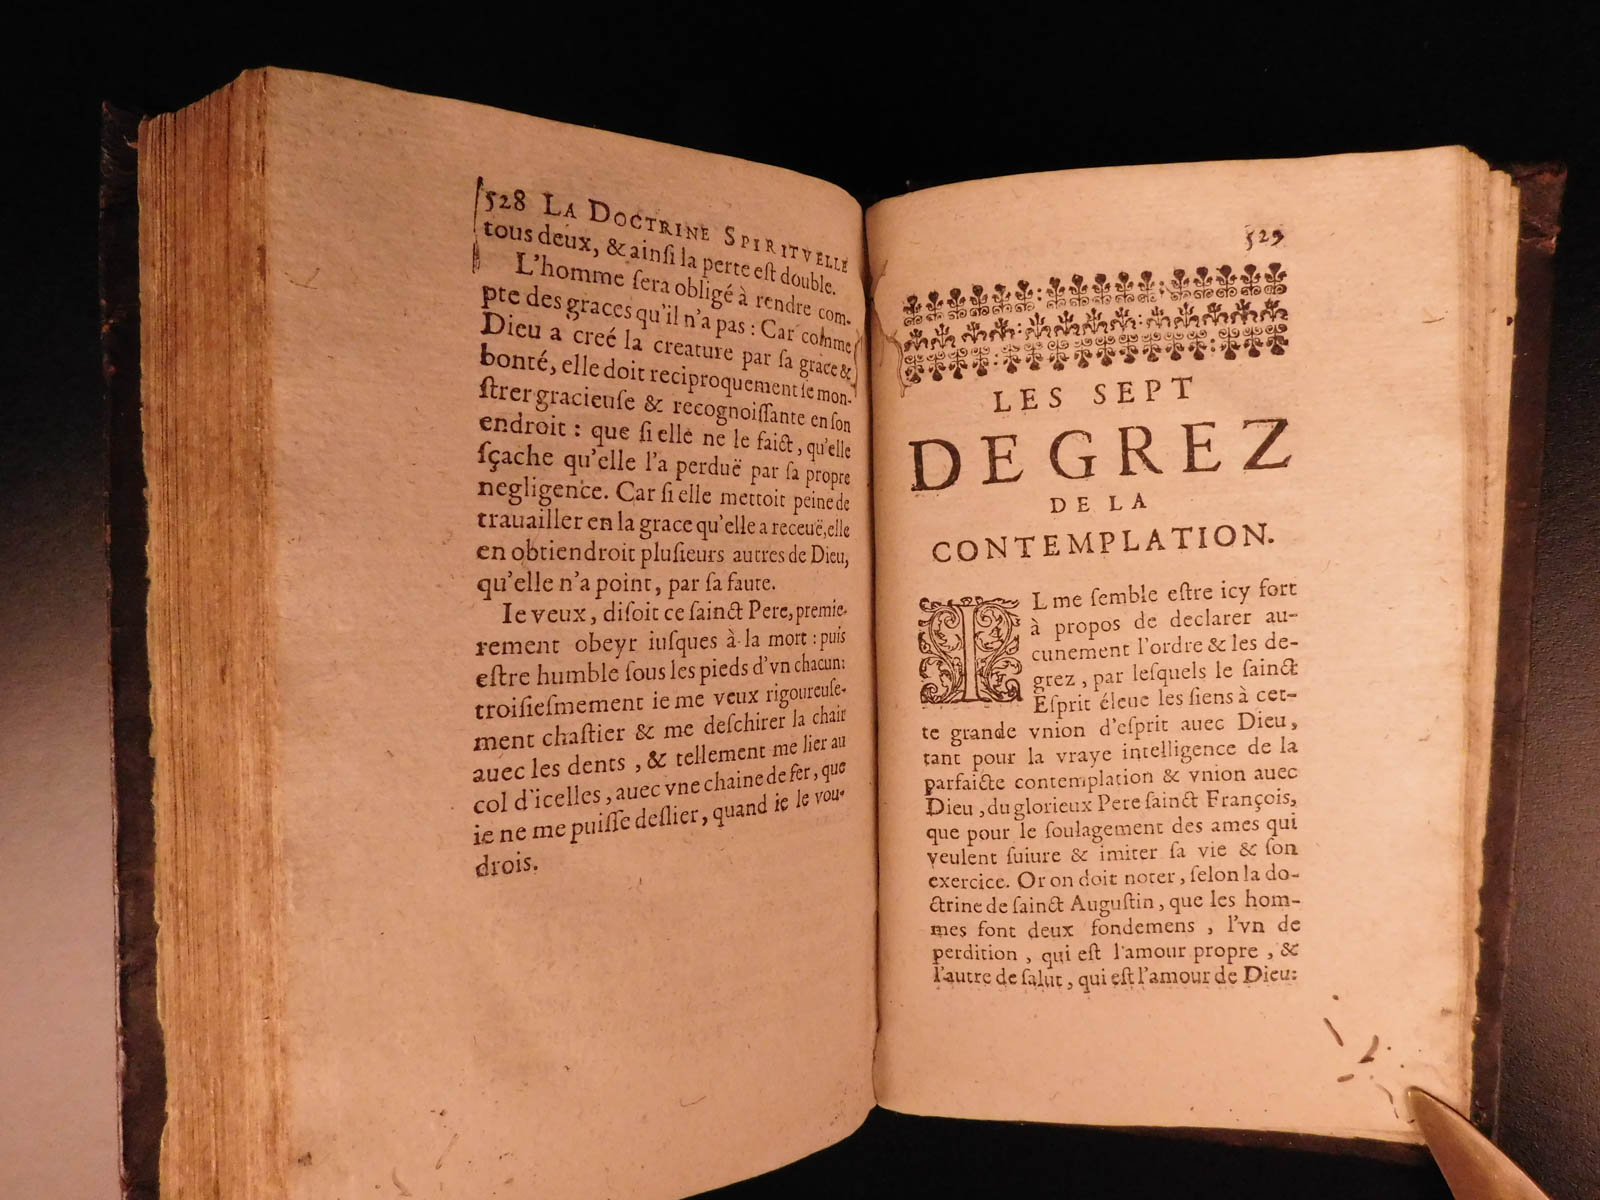 528 LA DOCTRINE SPIRITVELLE
tous deux, & ainſi la perte eſt double.
L'homme ſera obligé à rendre com-
pte des graces qu'il n'a pas : Car comme
Dieu a creé la creature par ſa grace &
bonté, elle doit reciproquement ſe mon-
ſtrer gracieuſe & recognoiſſante en ſon
endroit : que ſi elle ne le faict, qu'elle
ſçache qu'elle l'a perduë par ſa propre
negligence. Car ſi elle mettoit peine de
trauailler en la grace qu'elle a receuë, elle
en obtiendroit pluſieurs autres de Dieu,
qu'elle n'a point, par ſa faute.
Ie veux, diſoit ce ſainct Pere, premie-
rement obeyr iuſques à la mort : puis
eſtre humble ſous les pieds d'vn chacun:
troiſieſmement ie me veux rigoureuſe-
ment chaſtier & me deſchirer la chair
auec les dents, & tellement me lier au
col d'icelles, auec vne chaine de fer, que
ie ne me puiſſe deſlier, quand ie le vou-
drois.
529
LES SEPT
DEGREZ
DE LA
CONTEMPLATION.
IL me ſemble eſtre icy fort
à propos de declarer au-
cunement l'ordre & les de-
grez, par leſquels le ſainct
Eſprit éleue les ſiens à cet-
te grande vnion d'eſprit auec Dieu,
tant pour la vraye intelligence de la
parfaicte contemplation & vnion auec
Dieu, du glorieux Pere ſainct François,
que pour le ſoulagement des ames qui
veulent ſuiure & imiter ſa vie & ſon
exercice. Or on doit noter, ſelon la do-
ctrine de ſainct Auguſtin, que les hom-
mes font deux fondemens, l'vn de
perdition, qui eſt l'amour propre, &
l'autre de ſalut, qui eſt l'amour de Dieu: